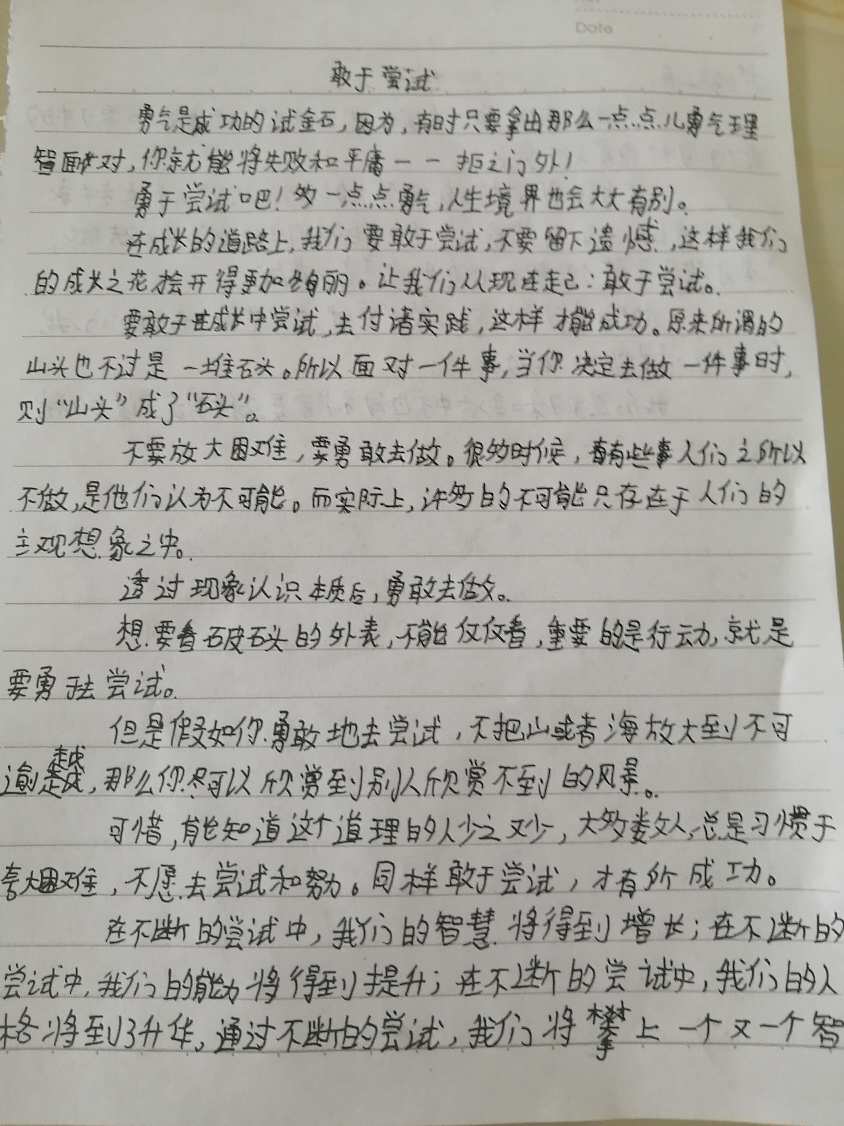 Date
敢于尝试
勇气是成功的试金石,因为,有时只要拿出那么一点点儿勇气理
智面对,你就能将失败和平庸一一拒之门外!
勇于尝试吧!多一点点勇气,人生境界也会大大有别。
在成长的道路上,我们要敢于尝试,不要留下遗憾,这样我们
的成长之花会开得更加绚丽。让我们从现在走已:敢于尝试。
要敢于在成长中尝试,去付诸实践,这样才能成功。原来所谓的
山头也不过是一堆石头。所以面对一件事,当你决定去做一件事时,
则“山头”成了“石头”。
不要放大困难,要勇敢去做。很多时候,有些事人们之所以
不做,是他们认为不可能。而实际上,许多的不可能只存在于人们的
主观想象之中。
透过现象认识本质后,勇敢去做。
想要看破石头的外表,不能仅仅看,重要的是行动,就是
要勇于去尝试。
但是假如你勇敢地去尝试,不把山或者海放大到不可
逾越,那么你尽可以欣赏到别人欣赏不到的风景。
可惜,能知道这个道理的人少之又少,大多数人总是习惯于
夸大困难,不愿去尝试和努力。同样敢于尝试,才有所成功。
在不断的尝试中,我们的智慧将得到增长;在不断的
尝试中,我们的能力将得到提升;在不断的尝试中,我们的人
格将到了升华,通过不断的尝试,我们将攀上一个又一个智